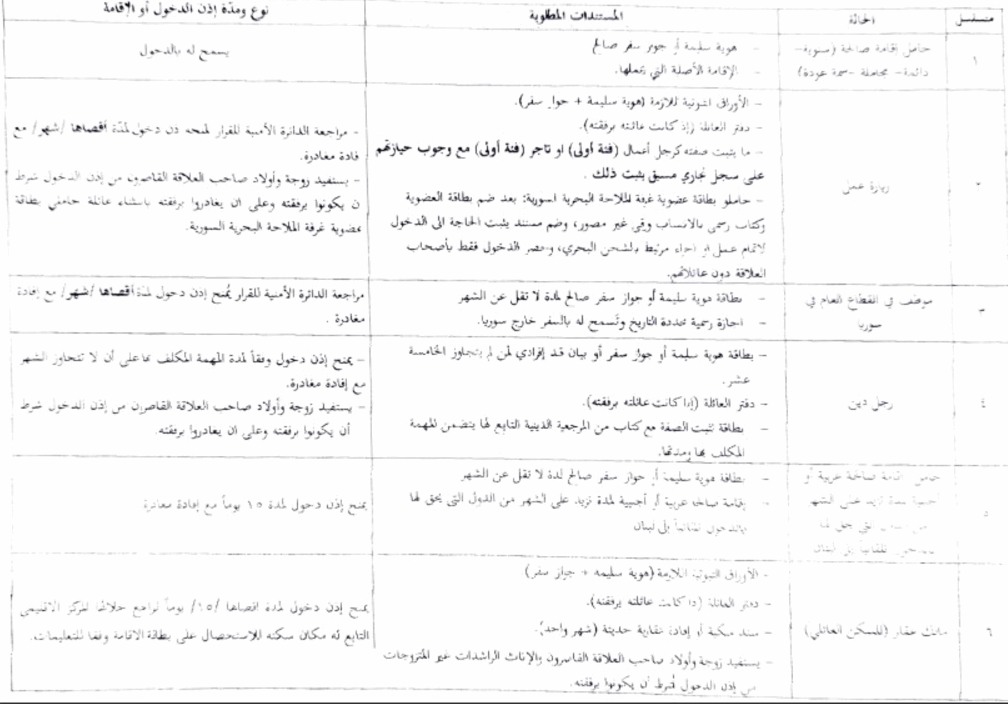 متسلسل
الحالة
المستندات المطلوبة
نوع ومدّة إذن الدخول أو الإقامة
١
حامل إقامة صالحة (سنوية-
دائمة- مجاملة -سمة عودة)
- هوية سليمة أو جواز سفر صالح
- الإقامة الأصلة التي يحملها.
يسمح له بالدخول
زيارة عمل
- الأوراق الثبوتية اللازمة (هوية سليمة + جواز سفر).
- دفتر العائلة (إذا كانت عائلته برفقته).
- ما يثبت صفته كرجل أعمال (فئة أولى) او تاجر (فئة أولى) مع وجوب حيازتهم
على سجل تجاري مسبق يثبت ذلك .
- حاملو بطاقة عضوية غرفة الملاحة البحرية السورية: بعد ضم بطاقة العضوية
وكتاب رسمي بالانتساب وقي غير مصور، وضم مستند يثبت الحاجة الى الدخول
لاتمام عمل او اجراء مرتبط بالشحن البحري، وحصر الدخول فقط بأصحاب
العلاقة دون عائلاتهم.
- مراجعة الدائرة الأمنية للقرار لمنحه دخول لمدّة أقصاها /شهر/ مع
فادة مغادرة.
- يستفيد زوجة وأولاد صاحب العلاقة القاصرون من إذن الدخول شرط
ن يكونوا برفقته وعلى ان يغادروا برفقته باستثناء عائلة حاملي بطاقة
عضوية غرفة الملاحة البحرية السورية.
موظف في القطاع العام في
سوريا
- بطاقة هوية سليمة أو جواز سفر صالح لمدة لا تقل عن الشهر
- اجازة رسمية محددة التاريخ وتَسمح له بالسفر خارج سوريا.
مراجعة الدائرة الأمنية للقرار يُمنح إذن دخول لمدة أقصاها /شهر/ مع إفادة
مغادرة .
٤
رجل دين
- بطاقة هوية سليمة أو جواز سفر أو بيان قيد إفرادي لمن لم يتجاوز الخامسة
عشر.
- دفتر العائلة (إذا كانت عائلته برفقته).
- بطاقة تثبت الصفة مع كتاب من المرجعية الدينية التابع لها يتضمن المهمة
المكلف بها ومدتها.
- يمنح إذن دخول وفقاً لمدة المهمة المكلف بها على أن لا تتجاوز الشهر
مع إفادة مغادرة.
- يستفيد زوجة وأولاد صاحب العلاقة القاصرون من إذن الدخول شرط
أن يكونوا برفقته وعلى ان يغادروا برفقته.
٥
حامل إقامة صالحة عربية أو
أجنبية لمدة تزيد عن الشهر
- بطاقة هوية سليمة أو جواز سفر صالح لمدة لا تقل عن الشهر
- إقامة صالحة عربية أو أجنبية لمدة تزيد على الشهر من الدول التي يحق لها
بالدخول تلقائياً إلى لبنان
يمنح إذن دخول لمدة ١٥ يوماً مع إفادة مغادرة
٦
مالك عقار (للسكن العائلي)
- الأوراق الثبوتية اللازمة (هوية سليمة + جواز سفر)
- دفتر العائلة (إذا كانت عائلته برفقته).
- سند ملكية أو إفادة عقارية حديثة (شهر واحد).
- يستفيد زوجة وأولاد صاحب العلاقة القاصرون والإناث الراشدات غير المتزوجات
من إذن الدخول شرط أن يكونوا برفقته.
يمنح إذن دخول لمدة اقصاها /١٥/ يوماً ليراجع خلالها المركز الاقليمي
التابع له مكان سكنه للاستحصال على بطاقة الاقامة وفقا للتعليمات.